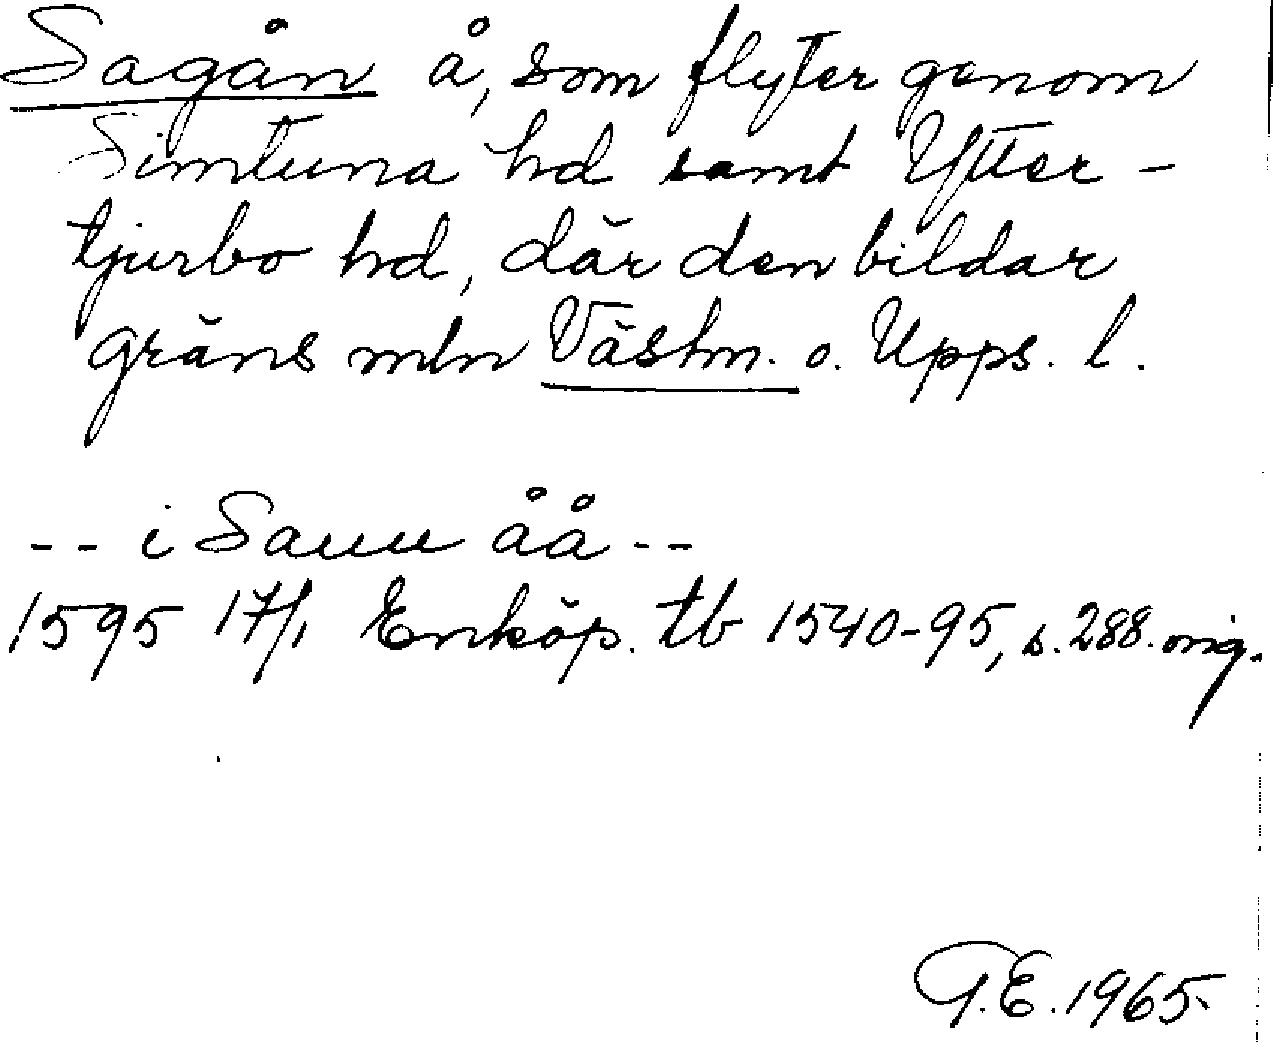 Sagån å, som flyter genom
Simtuna hd samt Ytter-
tjurbo hd, där den bildar
gräns mln Västm. o. Upps. l.
-- i Sauu åå --
1595 17/1 Enköp. tb 1540-95, s. 288. orig.
G.E. 1965.